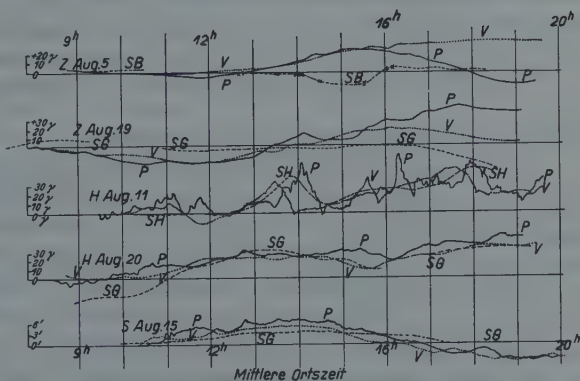 9h 12h 16h 20h
+20γ
10
0
Z Aug. 5 SB V P SB P V
+30γ
20
10
0
Z Aug. 19 SG V P SG P V SG
30γ
20γ
10γ
0γ
H Aug. 11 SH SH P V P SH P V
30γ
20
10
0
H Aug. 20 V SG P V SG P V SG P V
6'
3'
0'
S Aug. 15 P V SG P SG V
9h 12h 16h 20h
Mittlere Ortszeit